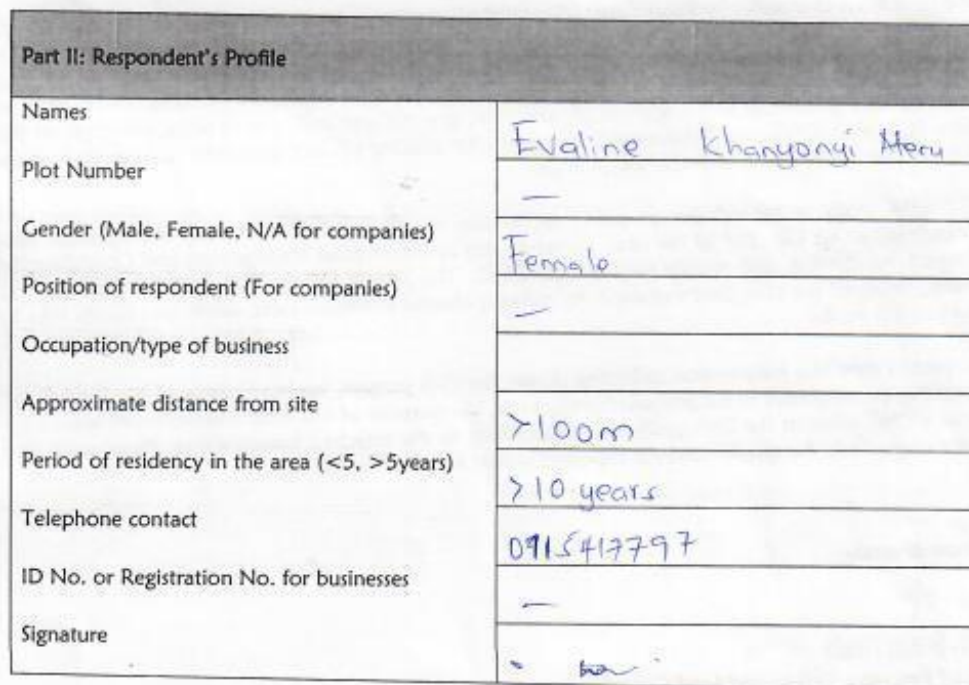 Part II: Respondent's Profile
Names
Evaline Khanyonyi Meru
Plot Number
—
Gender (Male, Female, N/A for companies)
Female
Position of respondent (For companies)
—
Occupation/type of business
Approximate distance from site
>100m
Period of residency in the area (<5, >5years)
>10 years
Telephone contact
0915417797
ID No. or Registration No. for businesses
—
Signature